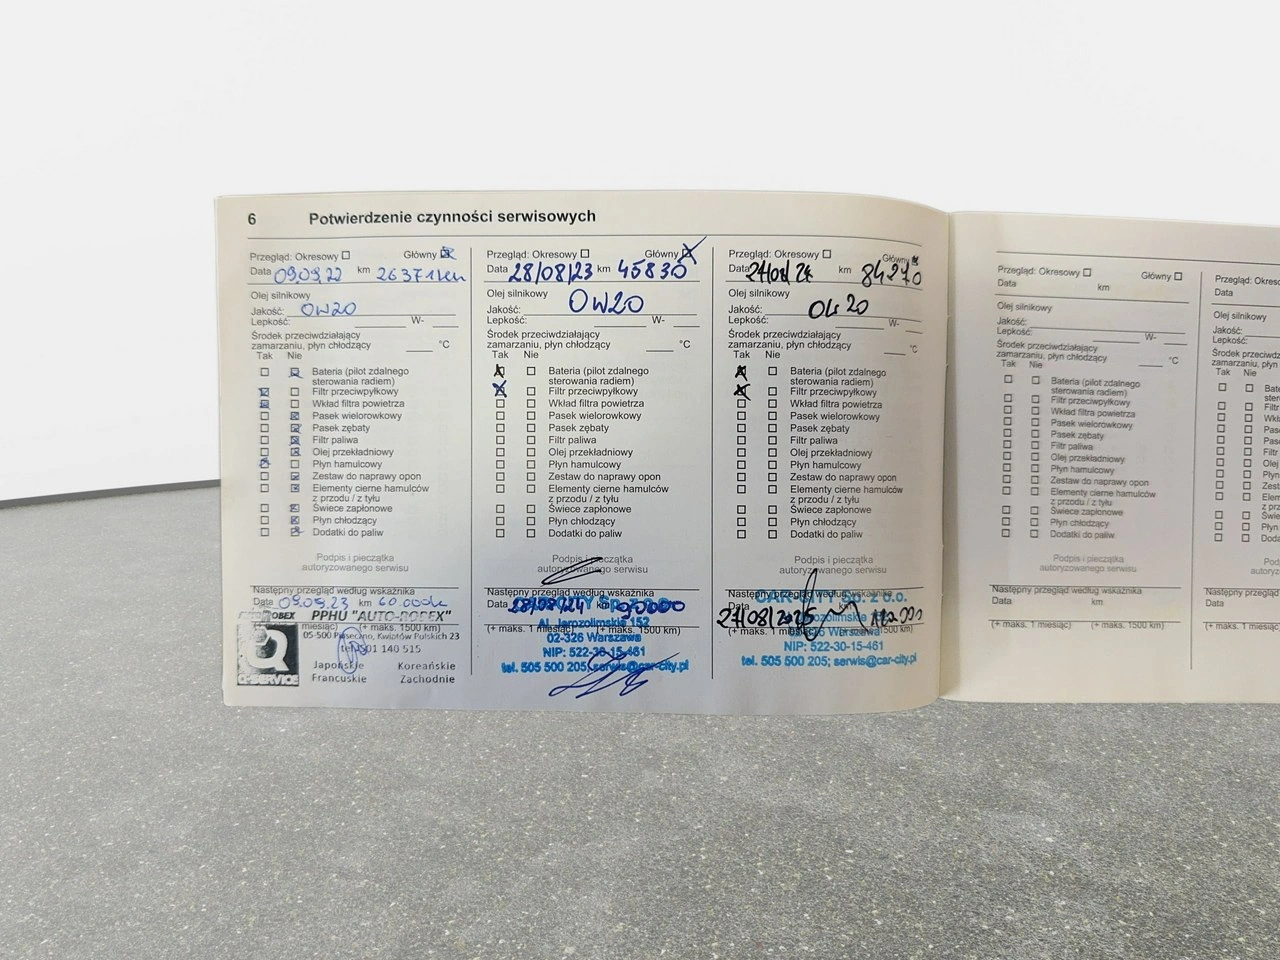 6 Potwierdzenie czynności serwisowych
Przegląd: Okresowy Główny
Data 09.09.22 km 26371km
Olej silnikowy
Jakość: 0W20
Lepkość: W-
Środek przeciwdziałający
zamarzaniu, płyn chłodzący °C
Tak Nie
Bateria (pilot zdalnego
sterowania radiem)
Filtr przeciwpyłkowy
Wkład filtra powietrza
Pasek wielorowkowy
Pasek zębaty
Filtr paliwa
Olej przekładniowy
Płyn hamulcowy
Zestaw do naprawy opon
Elementy cierne hamulców
z przodu / z tyłu
Świece zapłonowe
Płyn chłodzący
Dodatki do paliw
Podpis i pieczątka
autoryzowanego serwisu
Następny przegląd według wskaźnika
Data 09.09.23 km 60.000km
miesiąc) (+ maks. 1500 km)
PPHU "AUTO-ROBEX"
05-500 Piaseczno, Kwiatów Polskich 23
tel. 501 140 515
Japońskie Koreańskie
Francuskie Zachodnie
Q-SERVICE
Przegląd: Okresowy Główny
Data 28/08/23 km 45830
Olej silnikowy
Jakość: 0W20
Lepkość: W-
Środek przeciwdziałający
zamarzaniu, płyn chłodzący °C
Tak Nie
Bateria (pilot zdalnego
sterowania radiem)
Filtr przeciwpyłkowy
Wkład filtra powietrza
Pasek wielorowkowy
Pasek zębaty
Filtr paliwa
Olej przekładniowy
Płyn hamulcowy
Zestaw do naprawy opon
Elementy cierne hamulców
z przodu / z tyłu
Świece zapłonowe
Płyn chłodzący
Dodatki do paliw
Podpis i pieczątka
autoryzowanego serwisu
Następny przegląd według wskaźnika
Data 28/08/24 km 90000
(+ maks. 1 miesiąc) (+ maks. 1500 km)
Al. Jerozolimskie 152
02-326 Warszawa
NIP: 522-30-15-461
tel. 505 500 205; serwis@car-city.pl
Przegląd: Okresowy Główny
Data km 84270
Olej silnikowy
Jakość: 0W20
Lepkość: W-
Środek przeciwdziałający
zamarzaniu, płyn chłodzący °C
Tak Nie
Bateria (pilot zdalnego
sterowania radiem)
Filtr przeciwpyłkowy
Wkład filtra powietrza
Pasek wielorowkowy
Pasek zębaty
Filtr paliwa
Olej przekładniowy
Płyn hamulcowy
Zestaw do naprawy opon
Elementy cierne hamulców
z przodu / z tyłu
Świece zapłonowe
Płyn chłodzący
Dodatki do paliw
Podpis i pieczątka
autoryzowanego serwisu
Następny przegląd według wskaźnika
CAR-CITY Sp. z o.o.
Data
(+ maks. 1 miesiąc) 1500 km)
Warszawa
NIP: 522-30-15-461
tel. 505 500 205; serwis@car-city.pl
Przegląd: Okresowy Główny
Data km
Olej silnikowy
Jakość:
Lepkość: W-
Środek przeciwdziałający
zamarzaniu, płyn chłodzący °C
Tak Nie
Bateria (pilot zdalnego
sterowania radiem)
Filtr przeciwpyłkowy
Wkład filtra powietrza
Pasek wielorowkowy
Pasek zębaty
Filtr paliwa
Olej przekładniowy
Płyn hamulcowy
Zestaw do naprawy opon
Elementy cierne hamulców
z przodu / z tyłu
Świece zapłonowe
Płyn chłodzący
Dodatki do paliw
Podpis i pieczątka
autoryzowanego serwisu
Następny przegląd według wskaźnika
Data km
(+ maks. 1 miesiąc) (+ maks. 1500 km)
Przegląd: Okreso
Data
Olej silnikowy
Jakość:
Lepkość:
Środek przeciwdz
zamarzaniu, płyn
Tak Nie
Bate
ster
Filtr
Wkł
Pas
Pas
Filtr
Olej
Płyn
Zest
Elem
z prz
Świe
Płyn
Doda
Po
auto
Następny przegląd
Data
(+ maks. 1 miesią